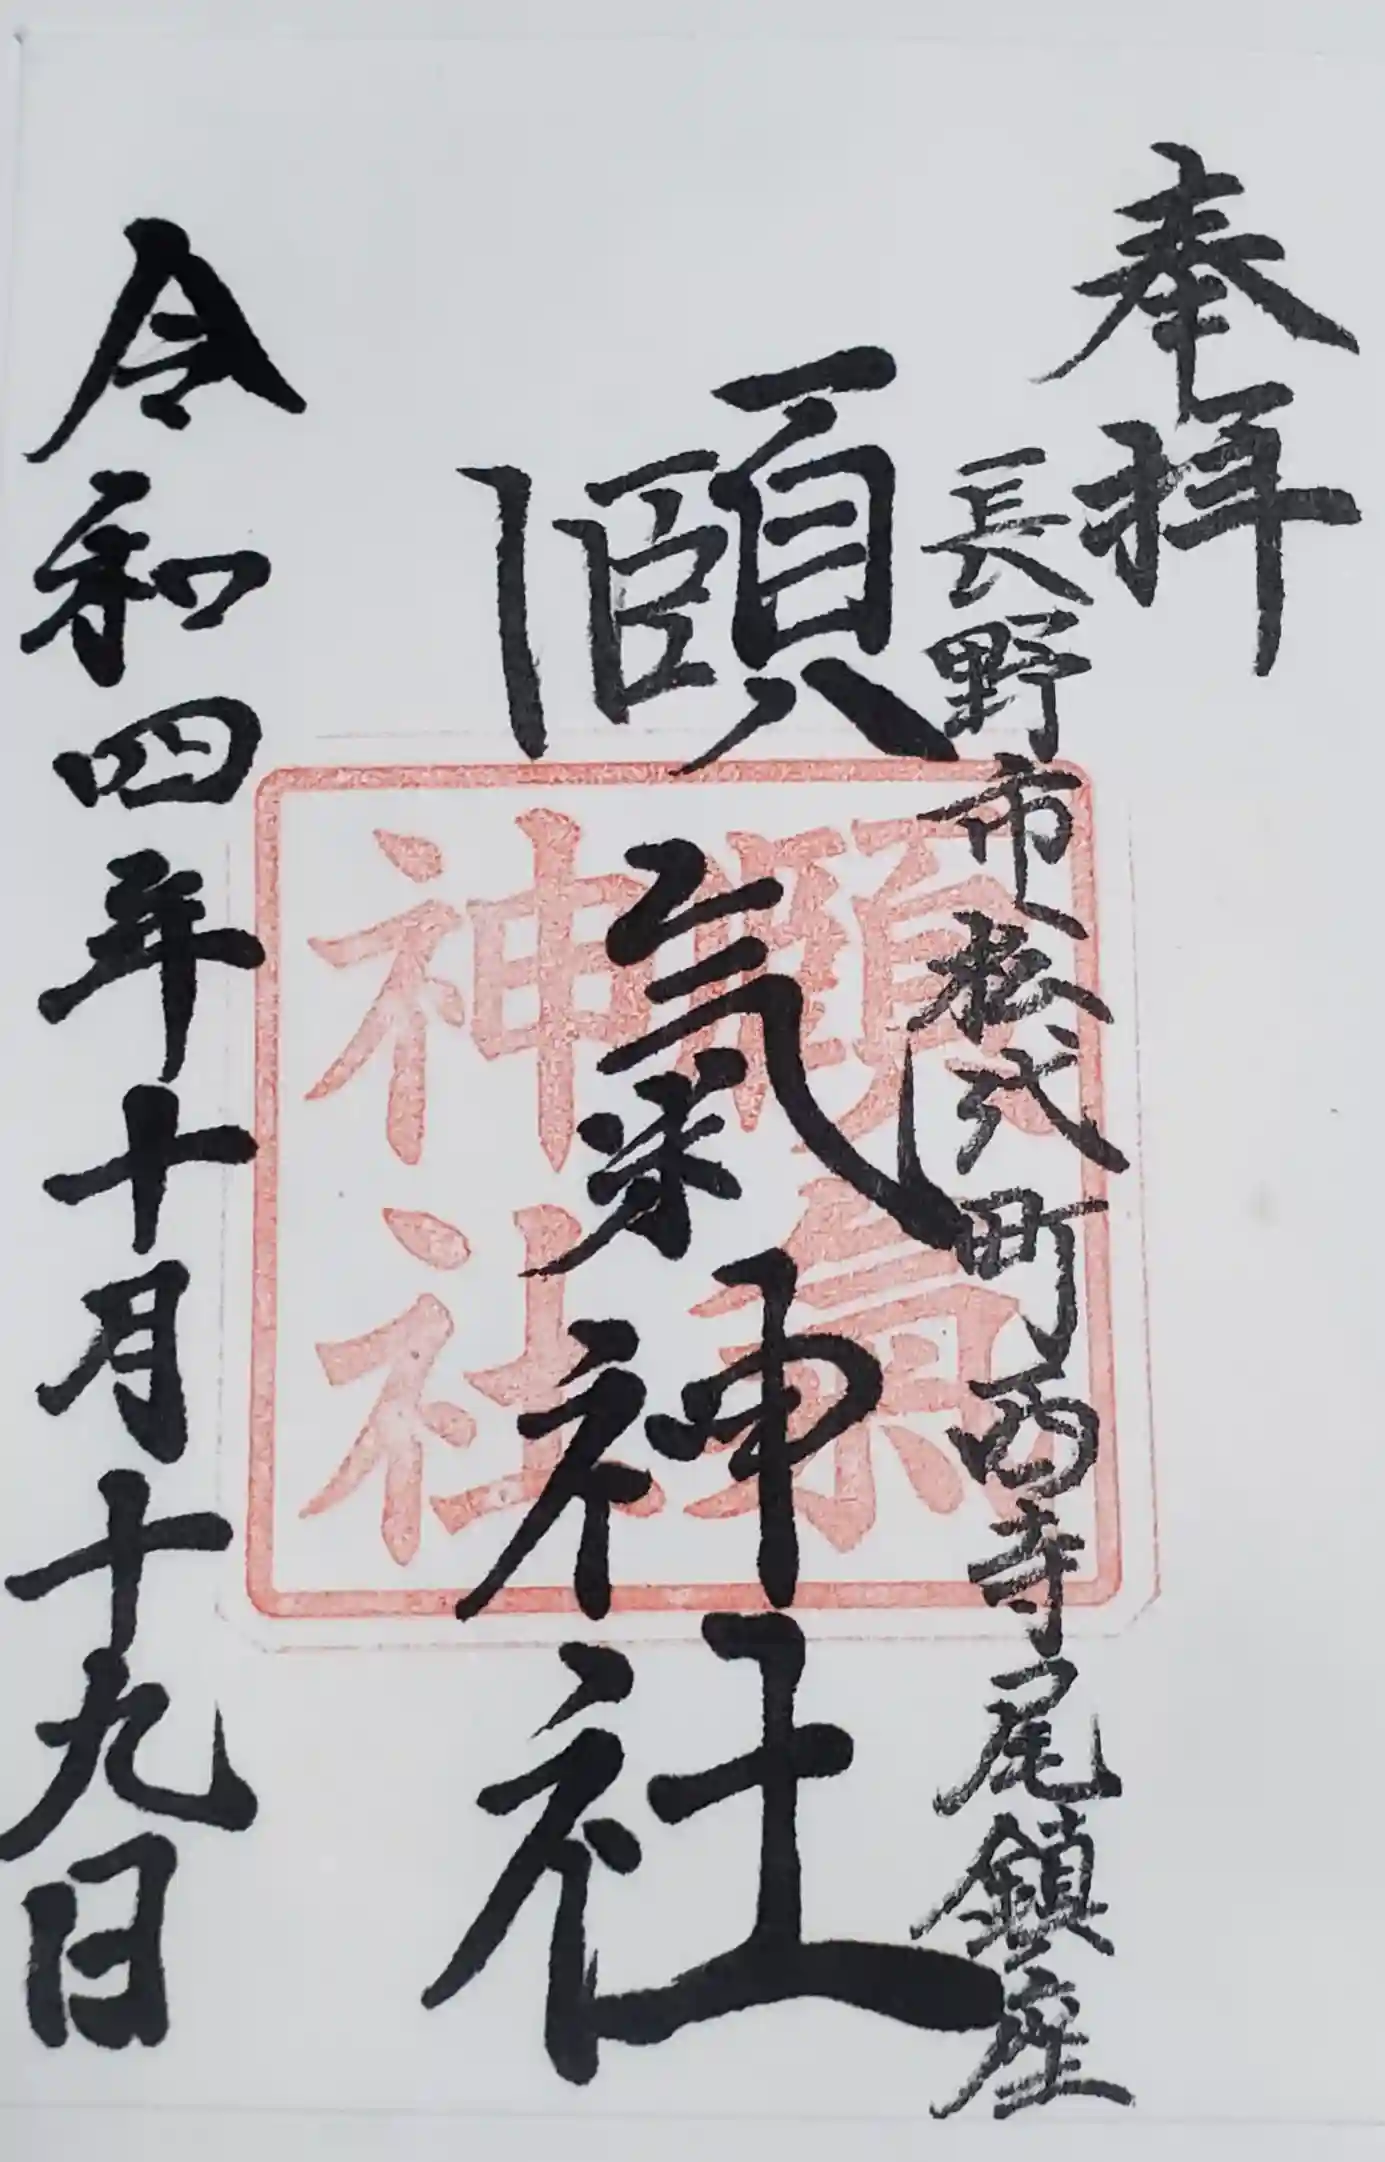 奉拝
長野市松代町西寺尾鎮座
頤氣神社
令和四年十月十九日
頤氣
神社